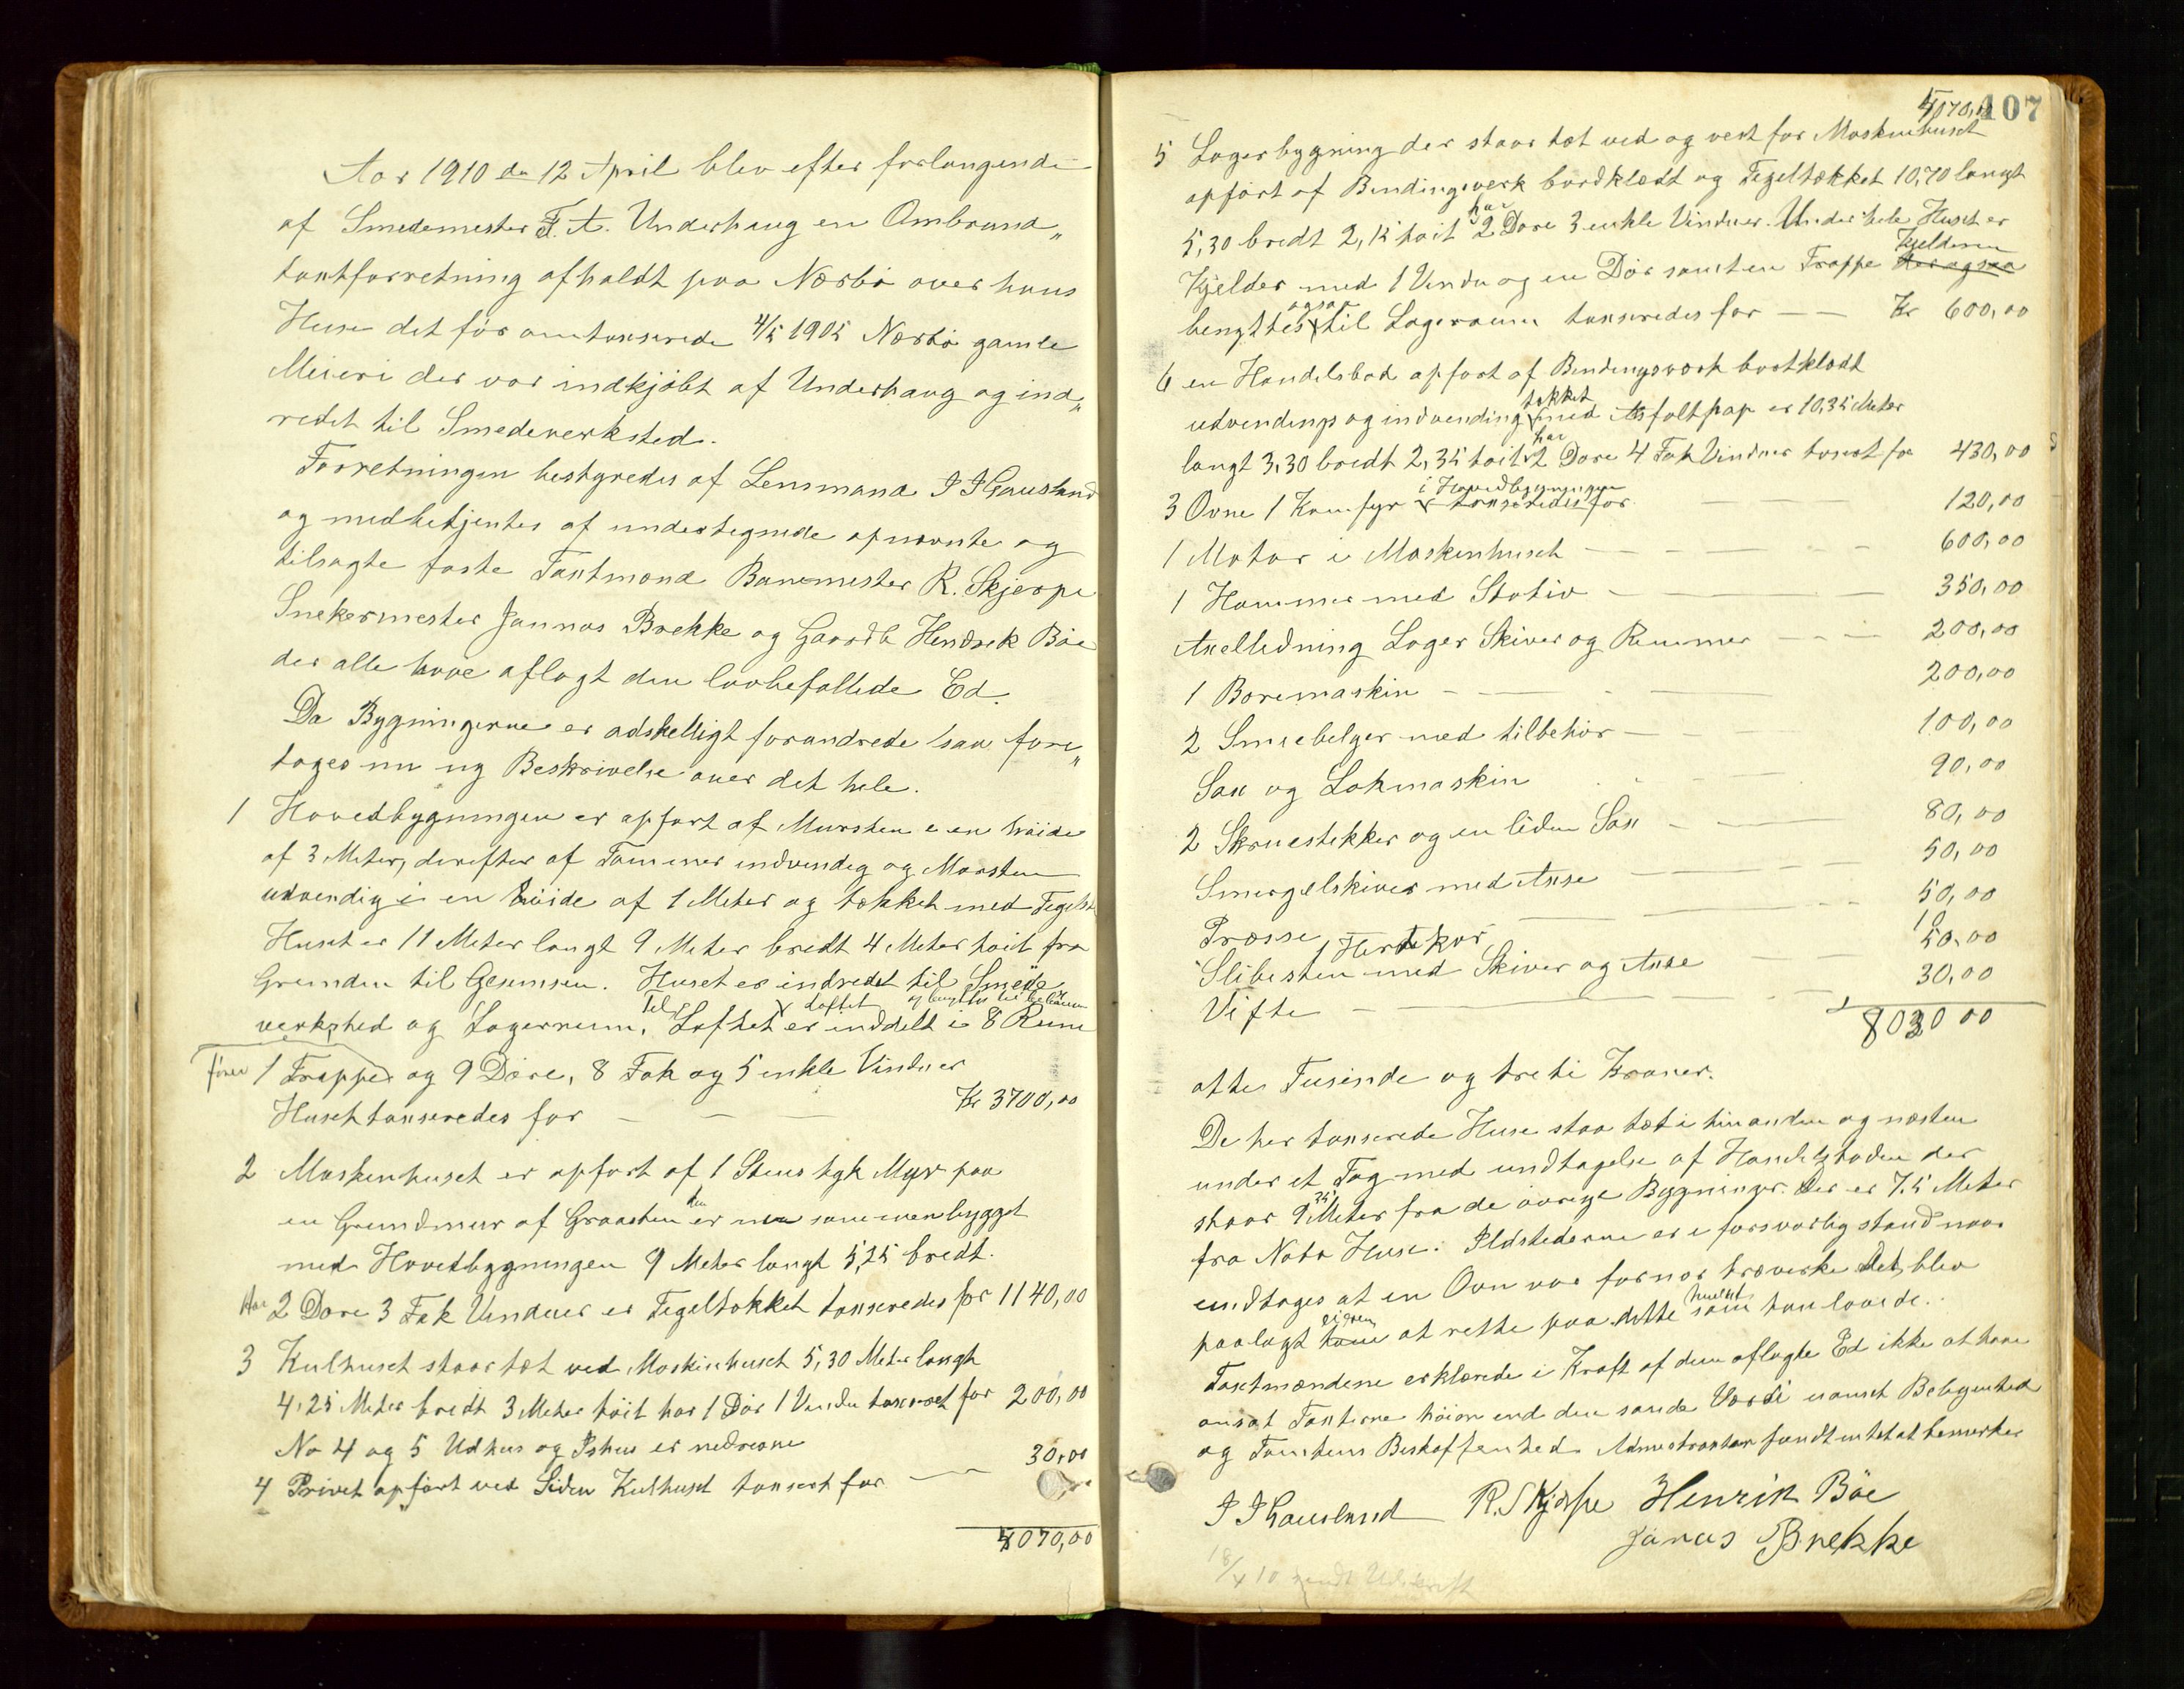 Aar 1910 den 12 April blev efter forlangende
af Smedemester T. A. Underhaug en Ombrand„
taxtforretning afholdt paa Nærbø over hans
Huse det før omtaxserede 4/5 1905 Nærbø gamle
Meieri der var indkjøbt af Underhaug og ind„
redet til Smedeverksted.
Forretningen bestyredes af Lensmand I I Gausland
og medbetjentes af undertegnede opnævnte og
tilsagte faste Taxtmænd Banemester R. Skjerpe
Snekermester Jannas Brekke og Gaardb Hendrik Bøe
der alle have aflagt den lovbefallede Ed.
Da Bygningerne er adskelligt forandrede saa fore„
tages nu ny Beskrivelse over det hele.
1 Hovedbygningen er opført af Mursten i en høide
af 3 Meter, derefter af Tømmer indvendig og Mursten
udvendig i en høide af 1 Meter og tækket med Tegelst
Huset er 11 Meter langt 9 Meter bredt 4 Meter høit fra
Grunden til Gesemsen. Huset er indredet til Smede
verksted og Lagerrum, Loftet er inddelt i 8 Rum
Til Loftet
fører 1 Trappe og 9 Døre, 8 Fak og 5 enkle Vinduer
Huset taxseredes for — — — Kr 3700,00
2 Maskinhuset er opført af 1 Stens tyk Mur paa
en Grundmur af Graasten den er nu sammenbygget
med Hovedbygningen 9 Meter langt 5,25 bredt.
Har 2 Døre 3 Fak Venduer er Tegeltækket taxseredes for 1140,00
3 Kulhuset staar tæt ved Maskinhuset 5,30 Meter langt
4,25 Meter bredt 3 Meter høit har 1 Dør 1 Vendu taxseret for 200,00
No 4 og 5 Udhus og Ishus er nedrevne
4 Privet opført ved Siden Kulhuset taxsert for — 30,00
5070,00
107
5070,00
5 Lagerbygning der staar tæt ved og vest for Maskinhuset
opført af Bindingsverk bordklædt og Tegeltækket 10,70 langt
5,30 bredt 2,15 høit har 2 Døre 3 enkle Vinduer. Under hele Huset er
Kjelder med 1 Vendu og en Dør samt en Trappe Kjelderen
benyttes ogsaa til Lagerrum taxseredes for — — Kr 600,00
6 en Handelsbod opført af Bendingsværk bortklædt
udvendings og indvending tækket med Asfaltpap er 10,35 Meter
langt 3,30 bredt 2,35 høit har 2 Døre 4 Fak Vinduer taxsert for 430,00
3 Ovne 1 Komfyr i Hovedbygningen taxseredes for — 120,00
1 Motor i Maskenhuset — — — 600,00
1 Hammer med Stativ — — — 350,00
Axelledning Lager Skiver og Remmer — — — 200,00
1 Boremaskin — — — 200,00
2 Smiebelger med tilbehør — — 100,00
Sax og Lokmaskin — — 90,00
2 Skruestekker og en liden Sax — — 80,00
Smergelskiver med Axse — — 50,00
Presse — — 50,00
1 Herdekar — 10
Slibesten med Skiver og Axse — — 50,00
Vifte — — 30,00
8030 00
otte Tusinde og treti Kroner.
De her taxserede Huse staa tæt i hinanden og næsten
under et Tag med undtagelse af Handelsboden der
staar 9,35 Meter fra de øvrige Bygninger. Der er 7.5 Meter
fra Nabo Huse. Ildstederne er i forsvarlig stand naar
undtages at en Ovn var for nær træverke det blev
paalagt eieren at rette paa dette hvilket han lovede.
Taxtmændene erklærede i Kraft af den aflagte Ed ikke at have
ansat Taxterne høiere end den sande Værdi uanset Beliggenhed
og Tomtens Beskaffenhed. Admestrantan fandt intet at bemerke
I I Gausland R. Skjerpe Henrik Bøe
Janas Brekke
18/4 10 sendt Udskrift